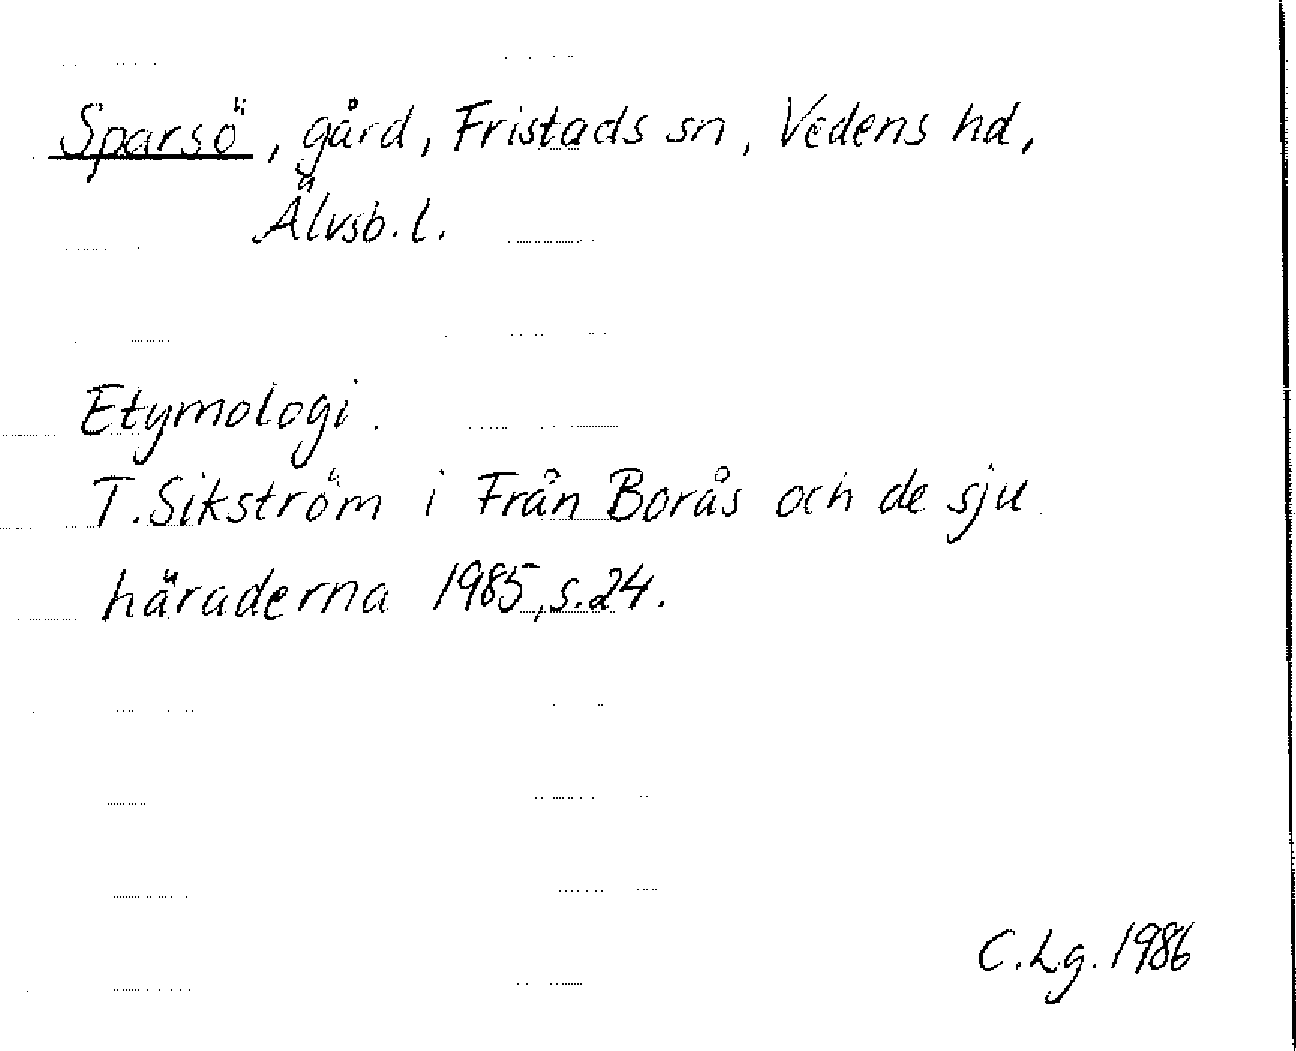 Sparsö, gård, Fristads sn, Vedens hd,
Älvsb. l.
Etymologi.
T. Sikström i Från Borås och de sju
häraderna 1985, s. 24.
C. Lg. 1986